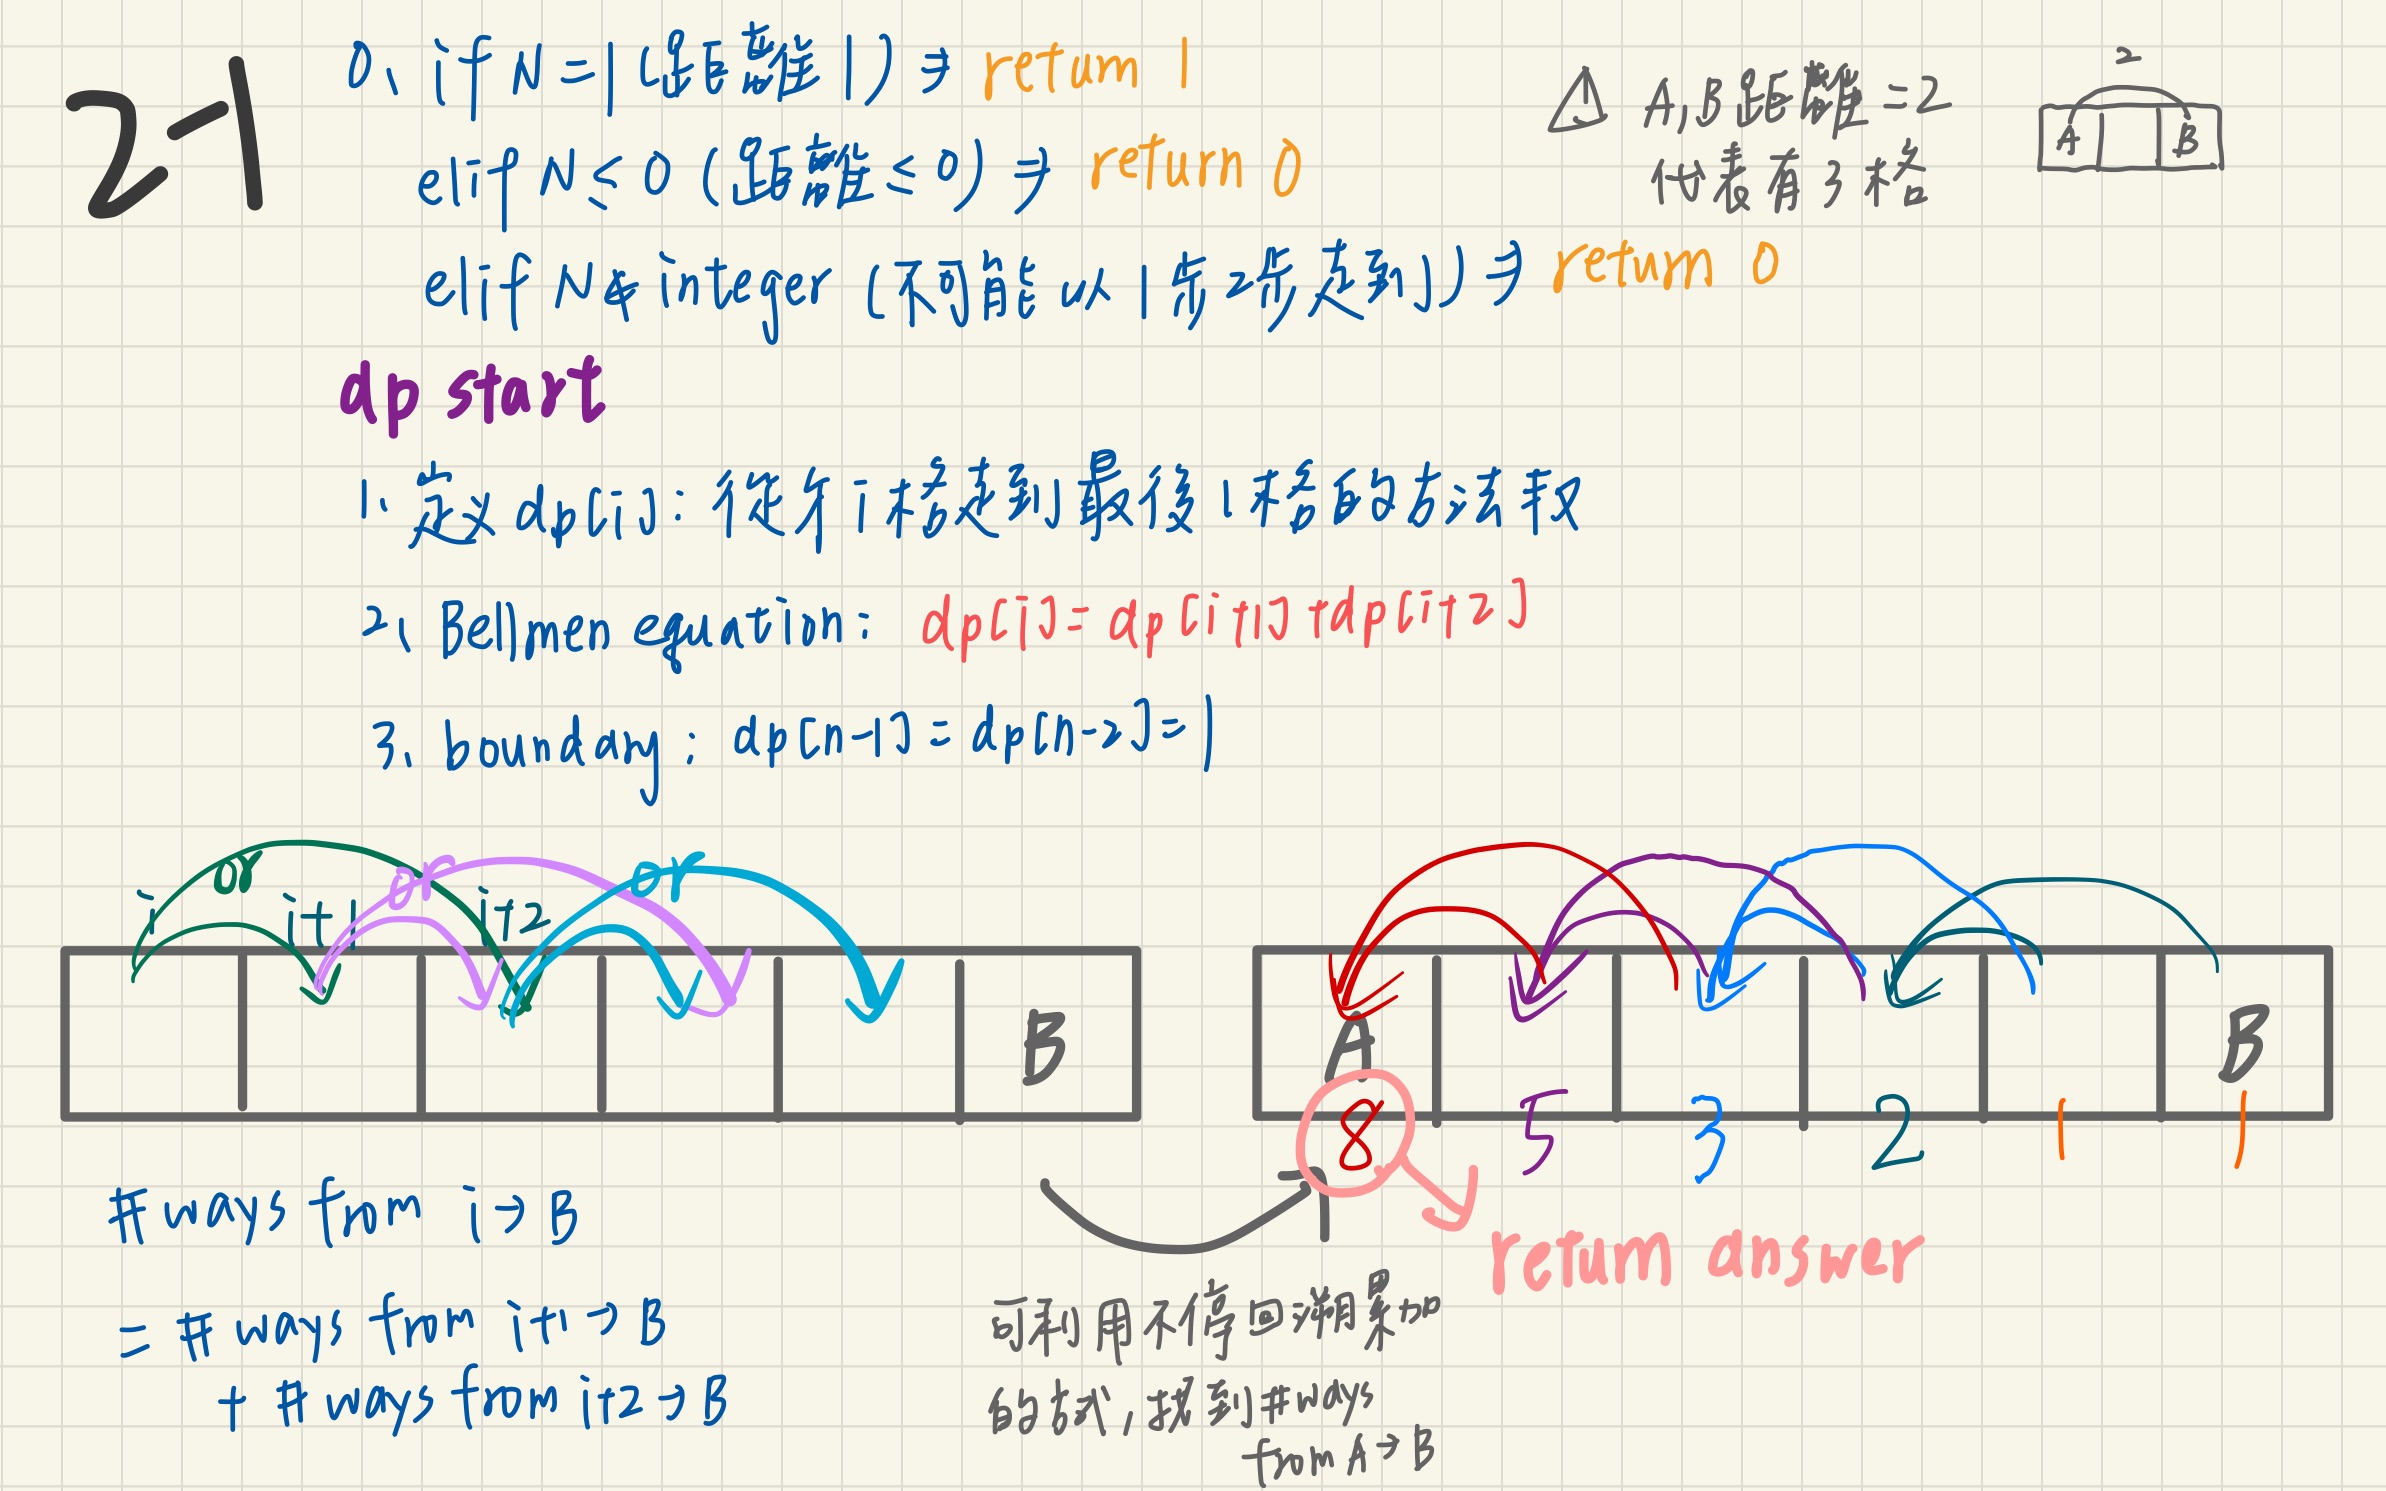 2-1
0、if N=1 (距離1) ⇒ return 1
elif N≤0 (距離≤0) ⇒ return 0
elif N∉integer (不可能以1步2步走到) ⇒ return 0
△ A,B距離=2
代表有3格
2
A B
dp start
1、定义 dp[i]: 從第i格走到最後1格的方法数
2、Bellmen equation: dp[i]= dp[i+1]+dp[i+2]
3、boundary: dp[n-1] = dp[n-2]=1
or or or
i i+1 i+2
B
A B
8 5 3 2 1 1
return answer
#ways from i→B
= # ways from i+1→B
+ # ways from i+2→B
可利用不停回溯累加
的方式,找到#ways
from A→B